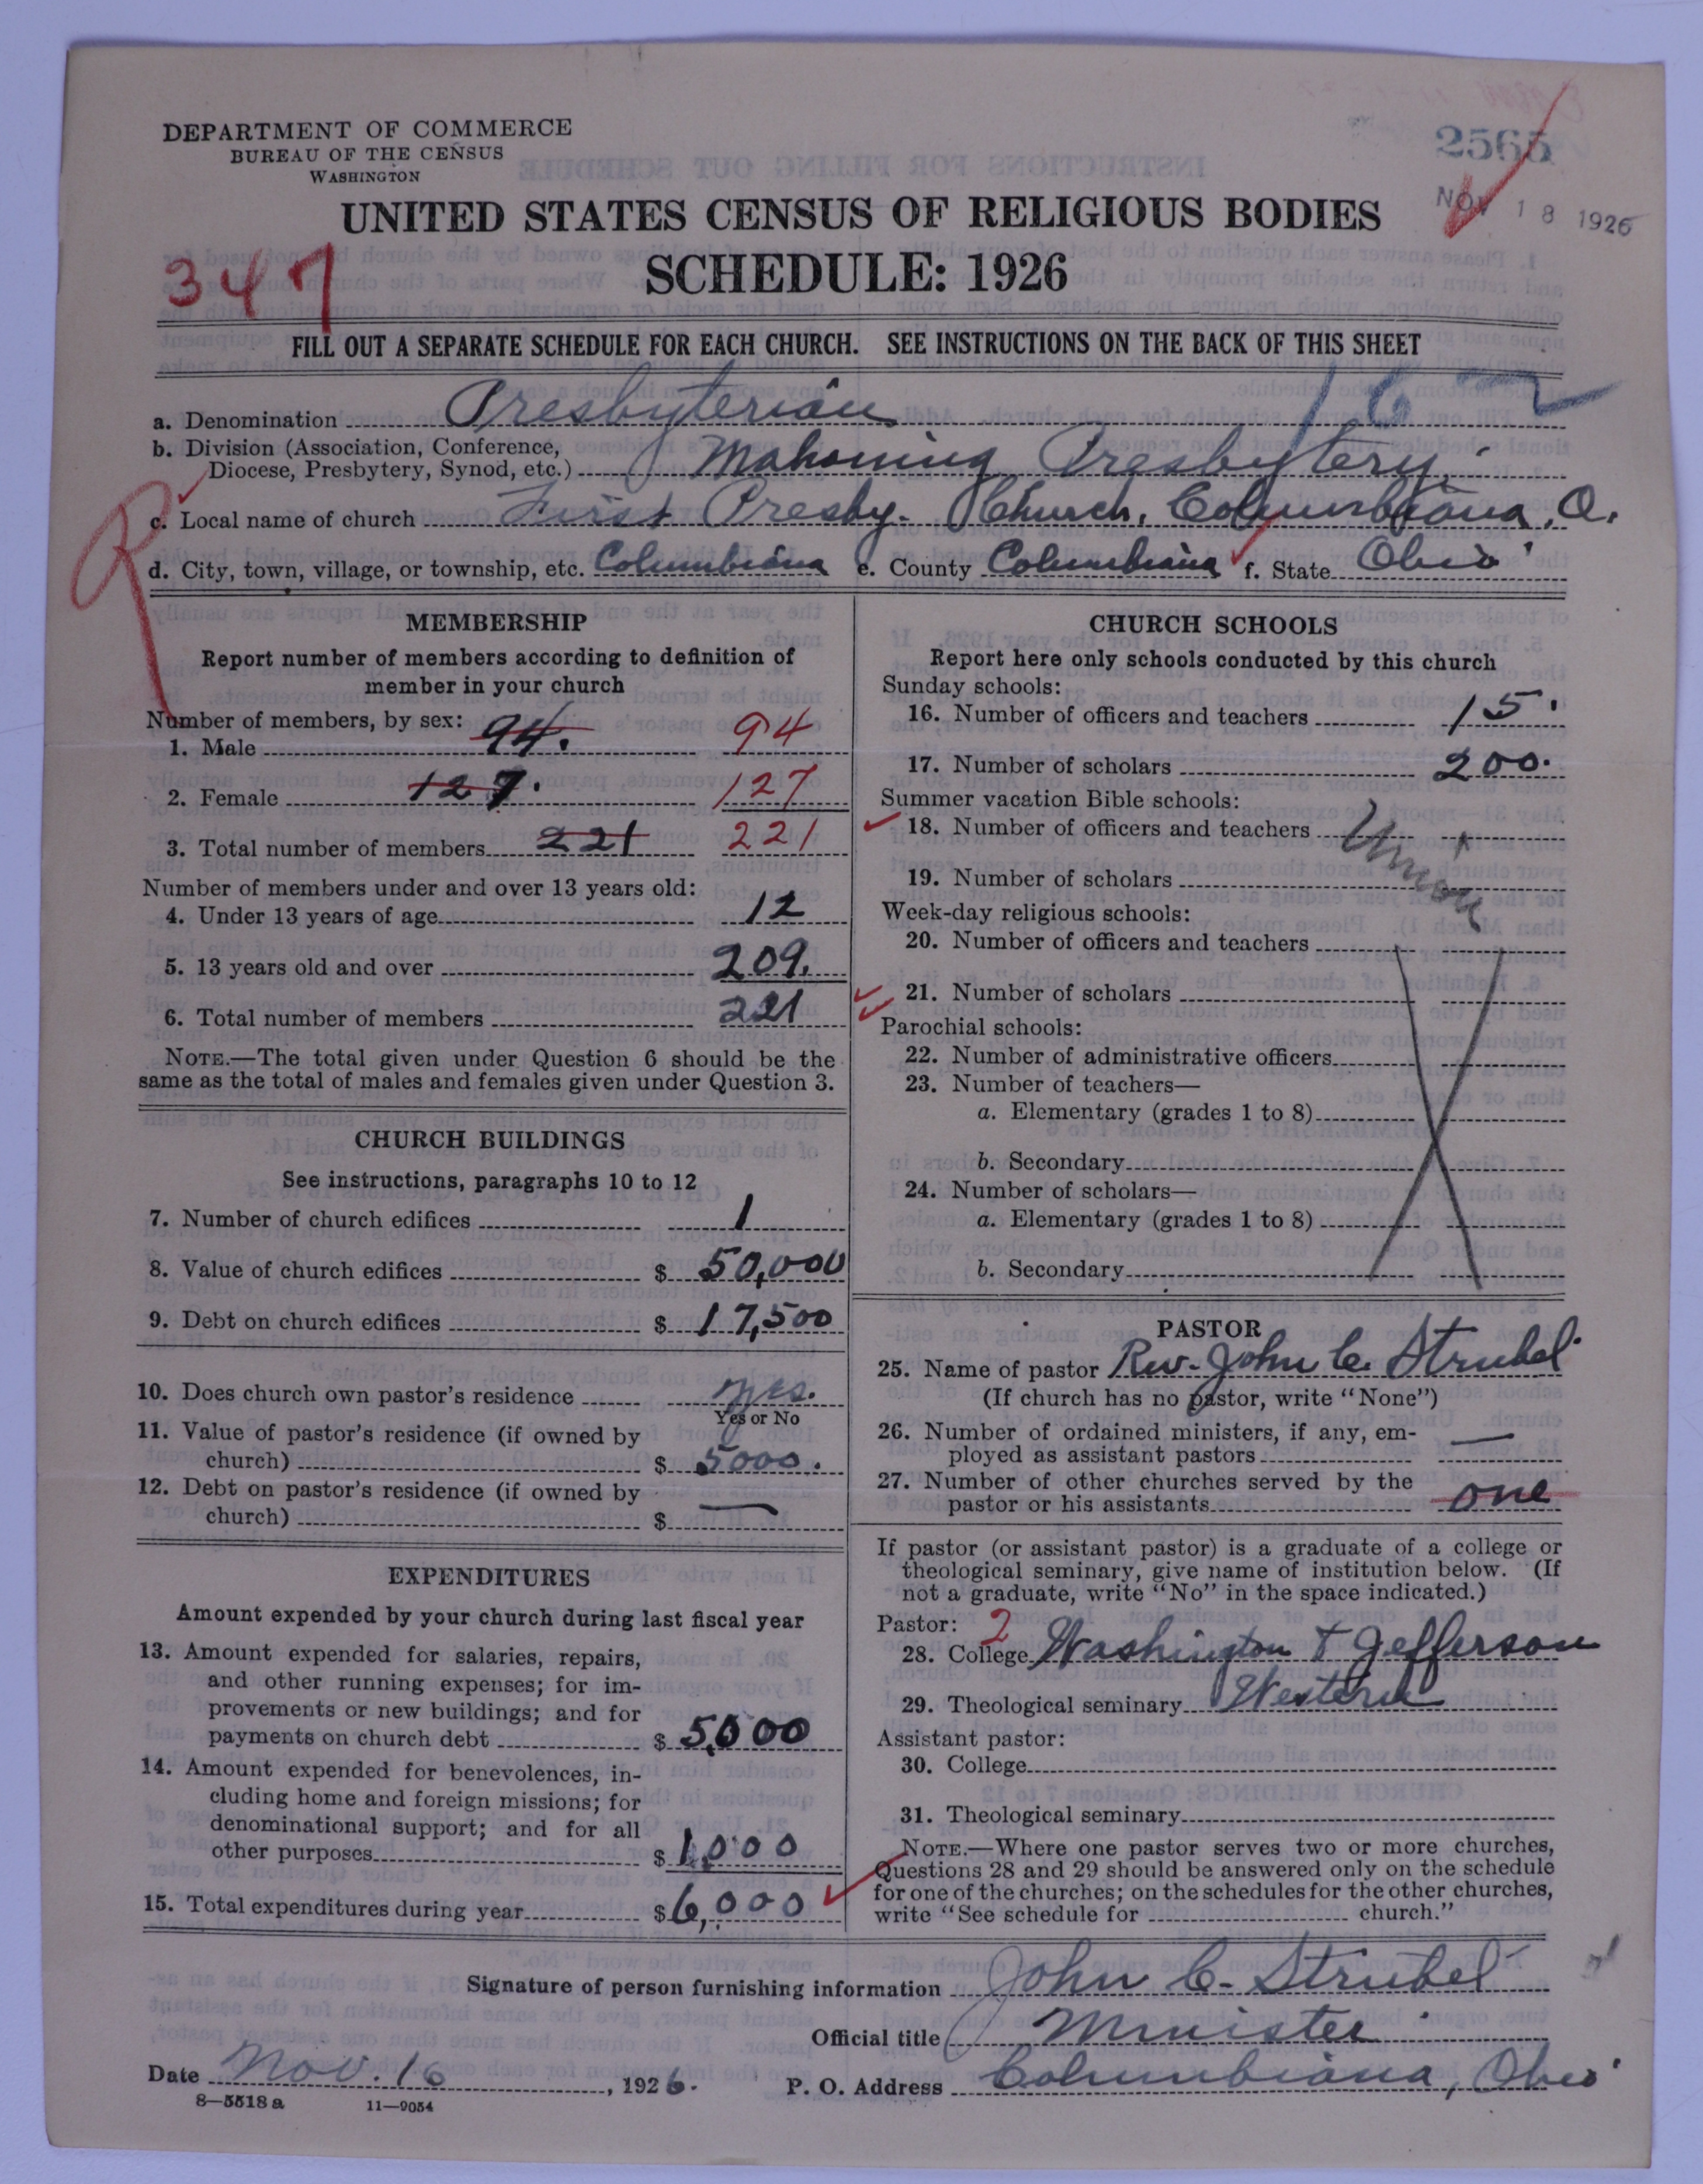 DEPARTMENT OF COMMERCE
BUREAU OF THE CENSUS
WASHINGTON
2565
NOV 18 1926
UNITED STATES CENSUS OF RELIGIOUS BODIES
SCHEDULE: 1926
347
FILL OUT A SEPARATE SCHEDULE FOR EACH CHURCH. SEE INSTRUCTIONS ON THE BACK OF THIS SHEET
a. Denomination Presbyterian
b. Division (Association, Conference,
Diocese, Presbytery, Synod, etc.) Mahoning Presbytery.
c. Local name of church First Presby. Church, Columbiana, O.
d. City, town, village, or township, etc. Columbiana e. County Columbiana f. State Ohio
MEMBERSHIP
Report number of members according to definition of
member in your church
Number of members, by sex:
1. Male 94. 94
2. Female 127. 127
3. Total number of members 221 221
Number of members under and over 13 years old:
4. Under 13 years of age 12
5. 13 years old and over 209.
6. Total number of members 221
NOTE.—The total given under Question 6 should be the
same as the total of males and females given under Question 3.
CHURCH BUILDINGS
See instructions, paragraphs 10 to 12
7. Number of church edifices 1
8. Value of church edifices $ 50,000
9. Debt on church edifices $ 17,500
10. Does church own pastor's residence yes.
Yes or No
11. Value of pastor's residence (if owned by
church) $ 5000.
12. Debt on pastor's residence (if owned by
church) $ —
EXPENDITURES
Amount expended by your church during last fiscal year
13. Amount expended for salaries, repairs,
and other running expenses; for im-
provements or new buildings; and for
payments on church debt $ 5,000
14. Amount expended for benevolences, in-
cluding home and foreign missions; for
denominational support; and for all
other purposes $ 1,000
15. Total expenditures during year $ 6,000
CHURCH SCHOOLS
Report here only schools conducted by this church
Sunday schools:
16. Number of officers and teachers 15.
17. Number of scholars 200.
Summer vacation Bible schools:
18. Number of officers and teachers Union
19. Number of scholars
Week-day religious schools:
20. Number of officers and teachers
21. Number of scholars
Parochial schools:
22. Number of administrative officers
23. Number of teachers—
a. Elementary (grades 1 to 8)
b. Secondary
24. Number of scholars—
a. Elementary (grades 1 to 8)
b. Secondary
PASTOR
25. Name of pastor Rev. John C. Strubel
(If church has no pastor, write "None")
26. Number of ordained ministers, if any, em-
ployed as assistant pastors —
27. Number of other churches served by the
pastor or his assistants one
If pastor (or assistant pastor) is a graduate of a college or
theological seminary, give name of institution below. (If
not a graduate, write "No" in the space indicated.)
Pastor: 2
28. College Washington & Jefferson
29. Theological seminary Western
Assistant pastor:
30. College
31. Theological seminary
NOTE.—Where one pastor serves two or more churches,
Questions 28 and 29 should be answered only on the schedule
for one of the churches; on the schedules for the other churches,
write "See schedule for church."
Signature of person furnishing information John C. Strubel
Official title Minister
Date Nov. 16, 1926. P. O. Address Columbiana, Ohio
8—5518 a 11—9054